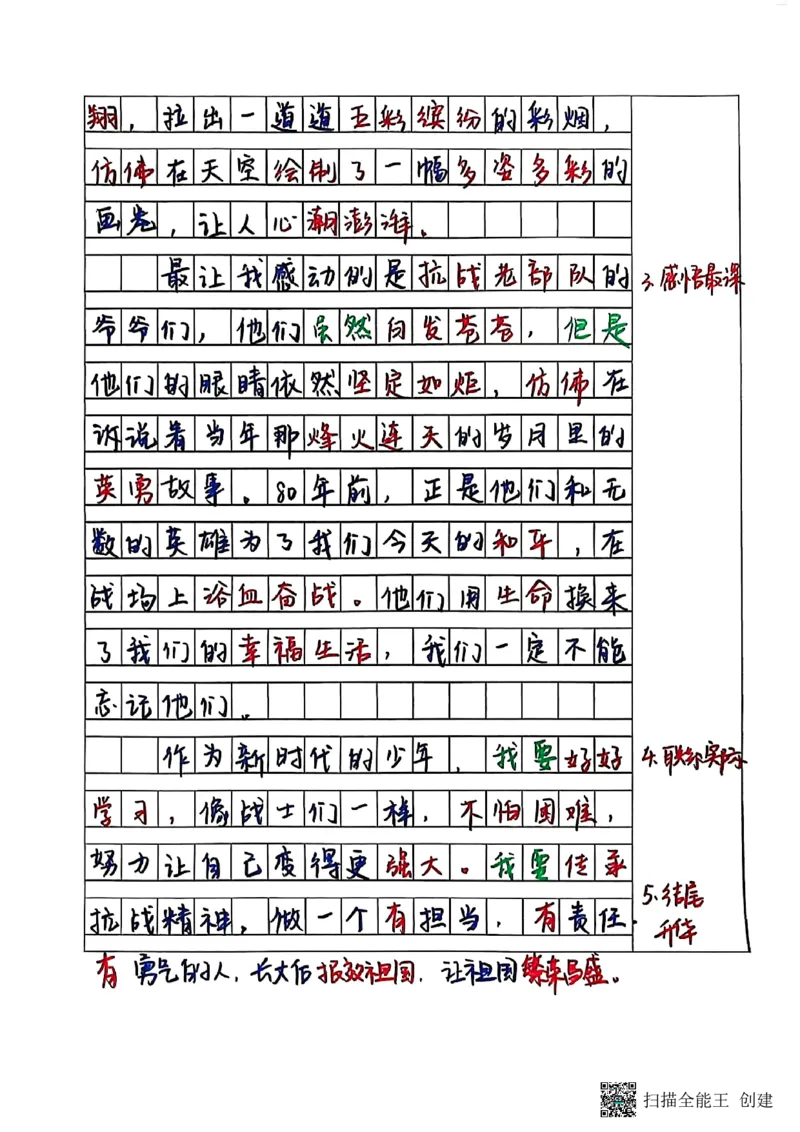 翔，拉出一道道五彩缤纷的彩烟，
仿佛在天空绘制了一幅多姿多彩的
画卷，让人心潮澎湃。
最让我感动的是抗战老部队的
3.感悟最深
爷爷们，他们虽然白发苍苍，但是
他们的眼睛依然坚定如炬，仿佛在
诉说着当年那烽火连天的岁月里的
英勇故事。80年前，正是他们和无
数的英雄为了我们今天的和平，在
战场上浴血奋战。他们用生命换来
了我们的幸福生活，我们一定不能
忘记他们。
作为新时代的少年，我要好好
4.联系实际
学习，像战士们一样，不怕困难，
努力让自己变得更强大。我要传承
5.结尾
抗战精神，做一个有担当，有责任.
升华
有勇气的人，长大后报效祖国，让祖国繁荣昌盛。
扫描全能王 创建